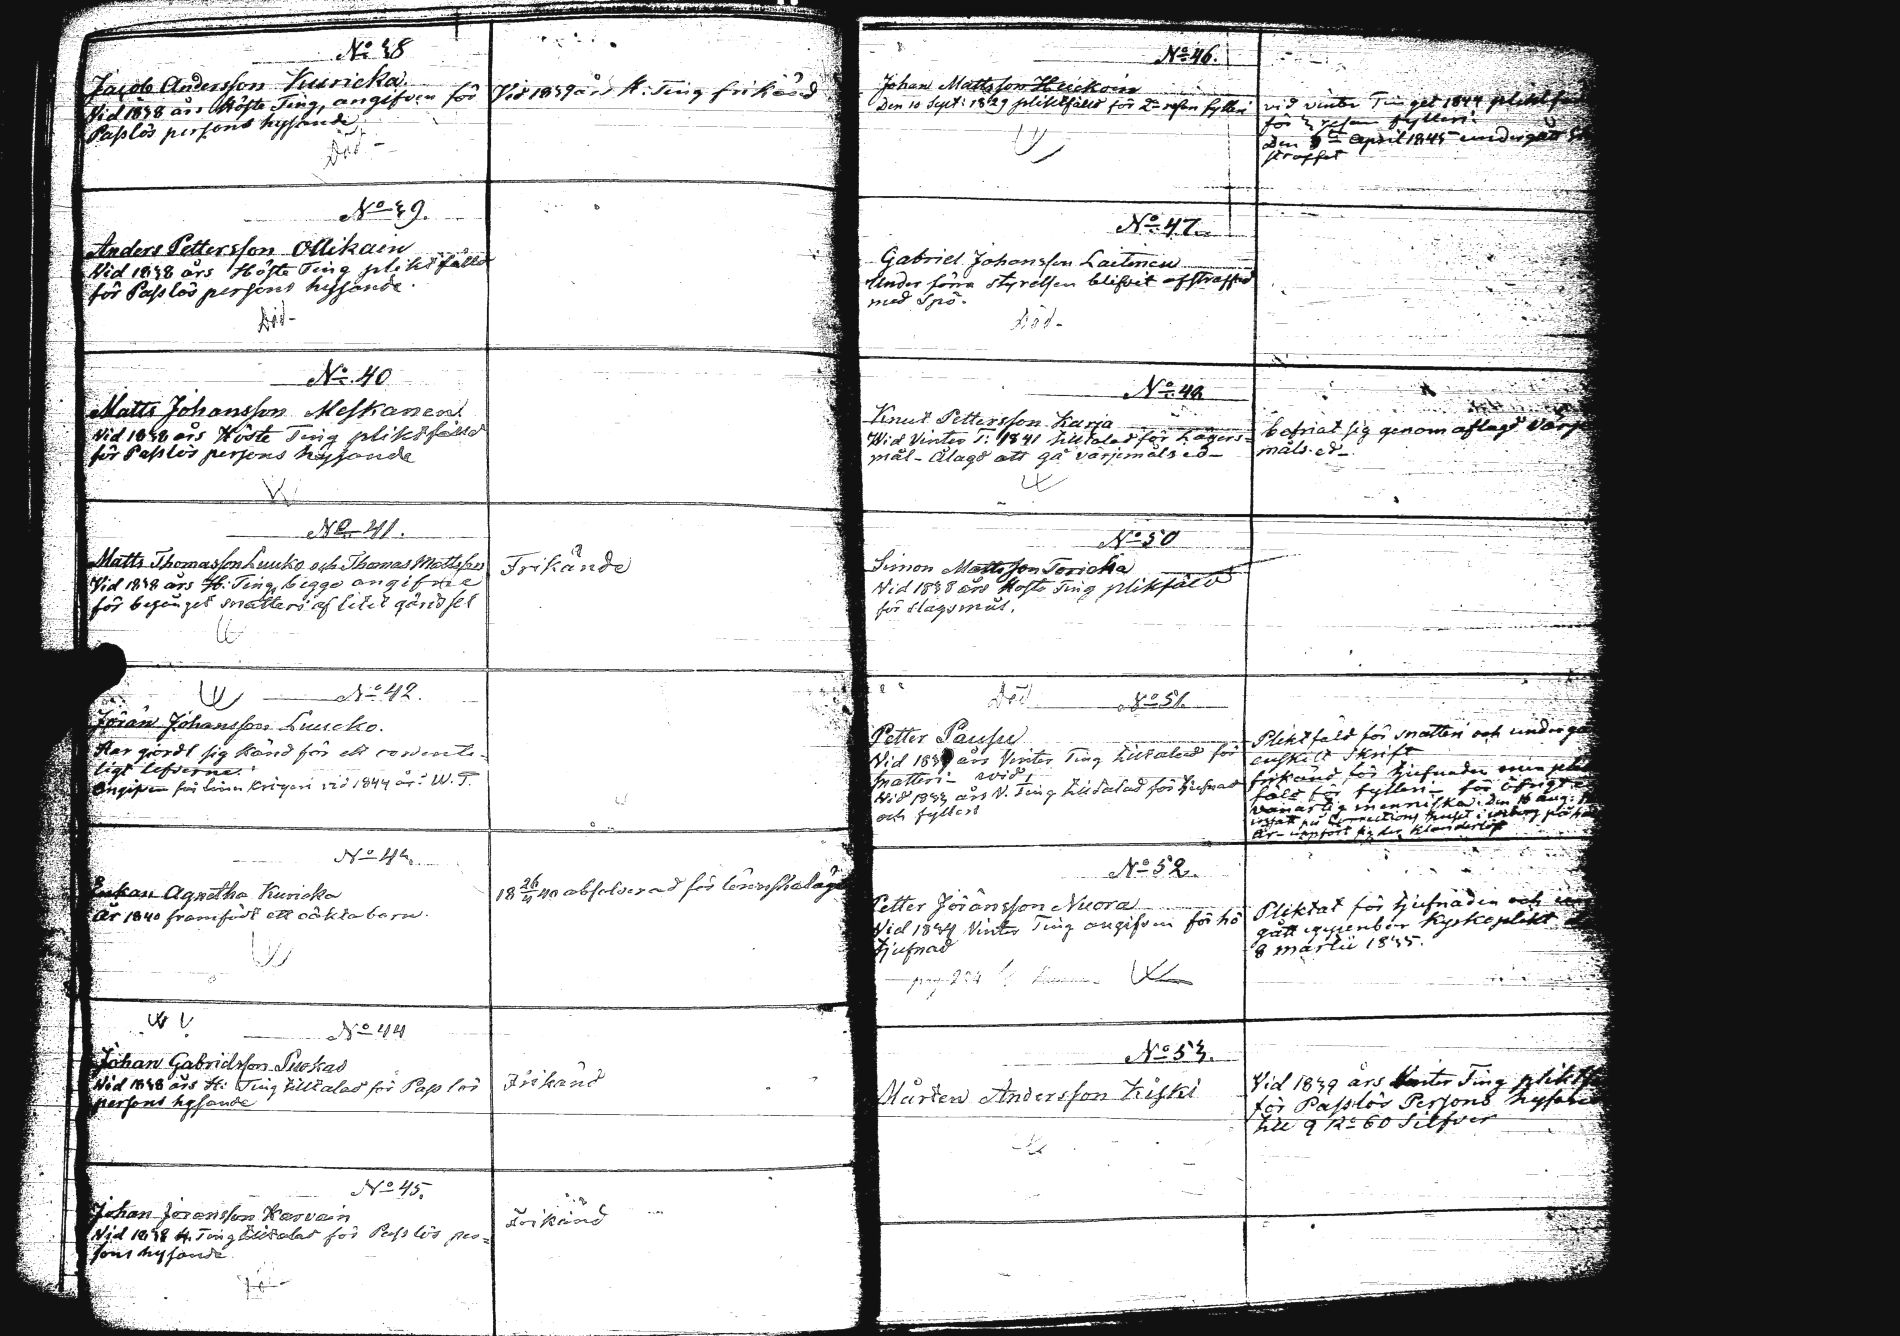 No 38
Jacob Andersson Kuricka
Vid 1838 års Höste Ting, angifven för
Passlös persons hysande
Död -
Vid 1839 års H. Ting frikänd
No 39.
Anders Pettersson Ollikain
Vid 1838 års Höste Ting pliktfälld
för Passlös persons hysande.
Död -
No 40
Matts Johansson Meskanen
Vid 1838 års Höste Ting pliktfälld
för Passlös persons hysande
No 41.
Matts Thomasson Luuko och Thomas Mattsson
Vid 1838 års H: Ting begge angifne
för begånget snatteri af litet
Frikände
No 42.
Jöran Johansson Luucko.
Har gjordt sig känd för ett
ligt lefverne.
Angifven för vid 1844 års W. T.
No 43.
Enkan Agnetha Kuricka
År 1840 framfödt ett oäkta barn.
18 26/4 40 absolverad för lönskaläge
No 44
Johan Gabrielsson Puckas
Vid 1838 års H: Ting tilltalad för Passlös
persons hysande
Frikänd
No 45.
Johan Joransson Harvain
Vid 1838 H. Ting tilltalad för Passlös per=
sons hysande
Död -
Frikänd
No 46.
Johan Mattsson Huckoin
den 10 Sept: 1829 pliktfälld för 2a resan fylleri
vid vinter Tinget 1844 pliktfäl
för 3 resan fylleri
den April 1845 undergått
straffet
No 47.
Gabriel Johansson Laitinen
Under förra styrelsen blifvit afstraffad
med Spö.
Död -
No 48
Knut Pettersson Karja
Wid Vinter T: 1841 tilltalad för Lägers=
mål - Ålagd att gå värjemåls ed -
befriat sig genom aflagd Värje
måls ed -
No 50
Simon Mattsson Toricka
Vid 1838 års Höste Ting plikfäld
för slagsmål.
Död
No 51.
Petter Pausu
Vid 183 års Vinter Ting tilltalad för
snatteri -
Vid 1833 års V. Ting tilltalad för tjufnad
och fylleri
Pliktfäld för snatteri och undergå
enskilt Skrift
frikänd för tjufnaden men plik
fäld för fylleri - för öfrigt
vanartig menniska. den 16 aug.
No 52.
Petter Jöransson Nuora
Vid 1834 Vinter Ting angifven för hö
tjufnad
pag 234
Pliktat för tjufnaden och
gått uppenbar Kyrkoplikt
8 martii 1835.
No 53.
Mårten Andersson Kiski
Vid 1839 års Vinter Ting pliktf
för Passlös Persons hysand
till 9 Ro 60 Silfver